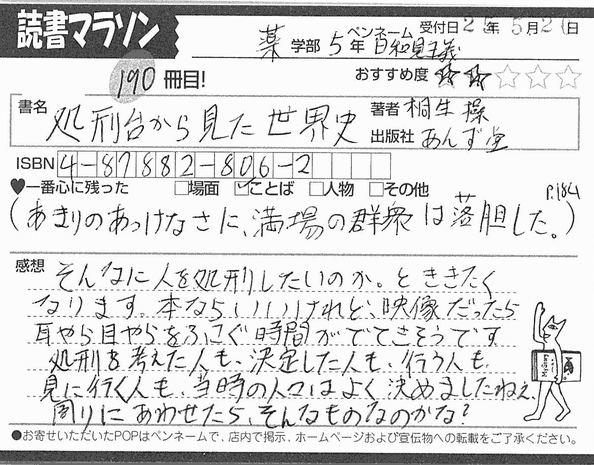 読書マラソン
薬 学部 5年 ペンネーム 日和見主義 受付日 25年 5月2 日
190 冊目!
おすすめ度 ★★☆☆☆
書名 処刑台から見た世界史
著者 桐生操
出版社 あんず堂
ISBN 4-87282-806-2
♥一番心に残った □場面 ☑ことば □人物 □その他 P.184
(あまりのあっけなさに、満場の群衆は落胆した。)
感想 そんなに人を処刑したいのか。とききたく
なります。本ならいいけれど、映像だったら
耳やら目やらをふさぐ時間がでてきそうです
処刑を考えた人も、決定した人も、行う人も、
見に行く人も、当時の人々はよく決めましたねえ。
周りにあわせたら、そんなものなのかな?
●お寄せいただいたPOPはペンネームで、店内で掲示、ホームページおよび宣伝物への転載をご了承ください。